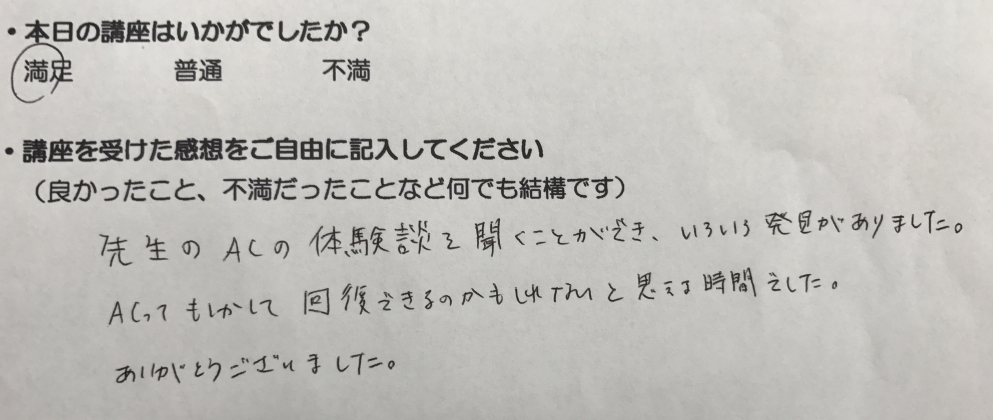 ・本日の講座はいかがでしたか？
満足 普通 不満
・講座を受けた感想をご自由に記入してください
（良かったこと、不満だったことなど何でも結構です）
先生のACの体験談を聞くことができ、いろいろ発見がありました。
ACってもしかして回復できるのかもしれないと思える時間でした。
ありがとうございました。